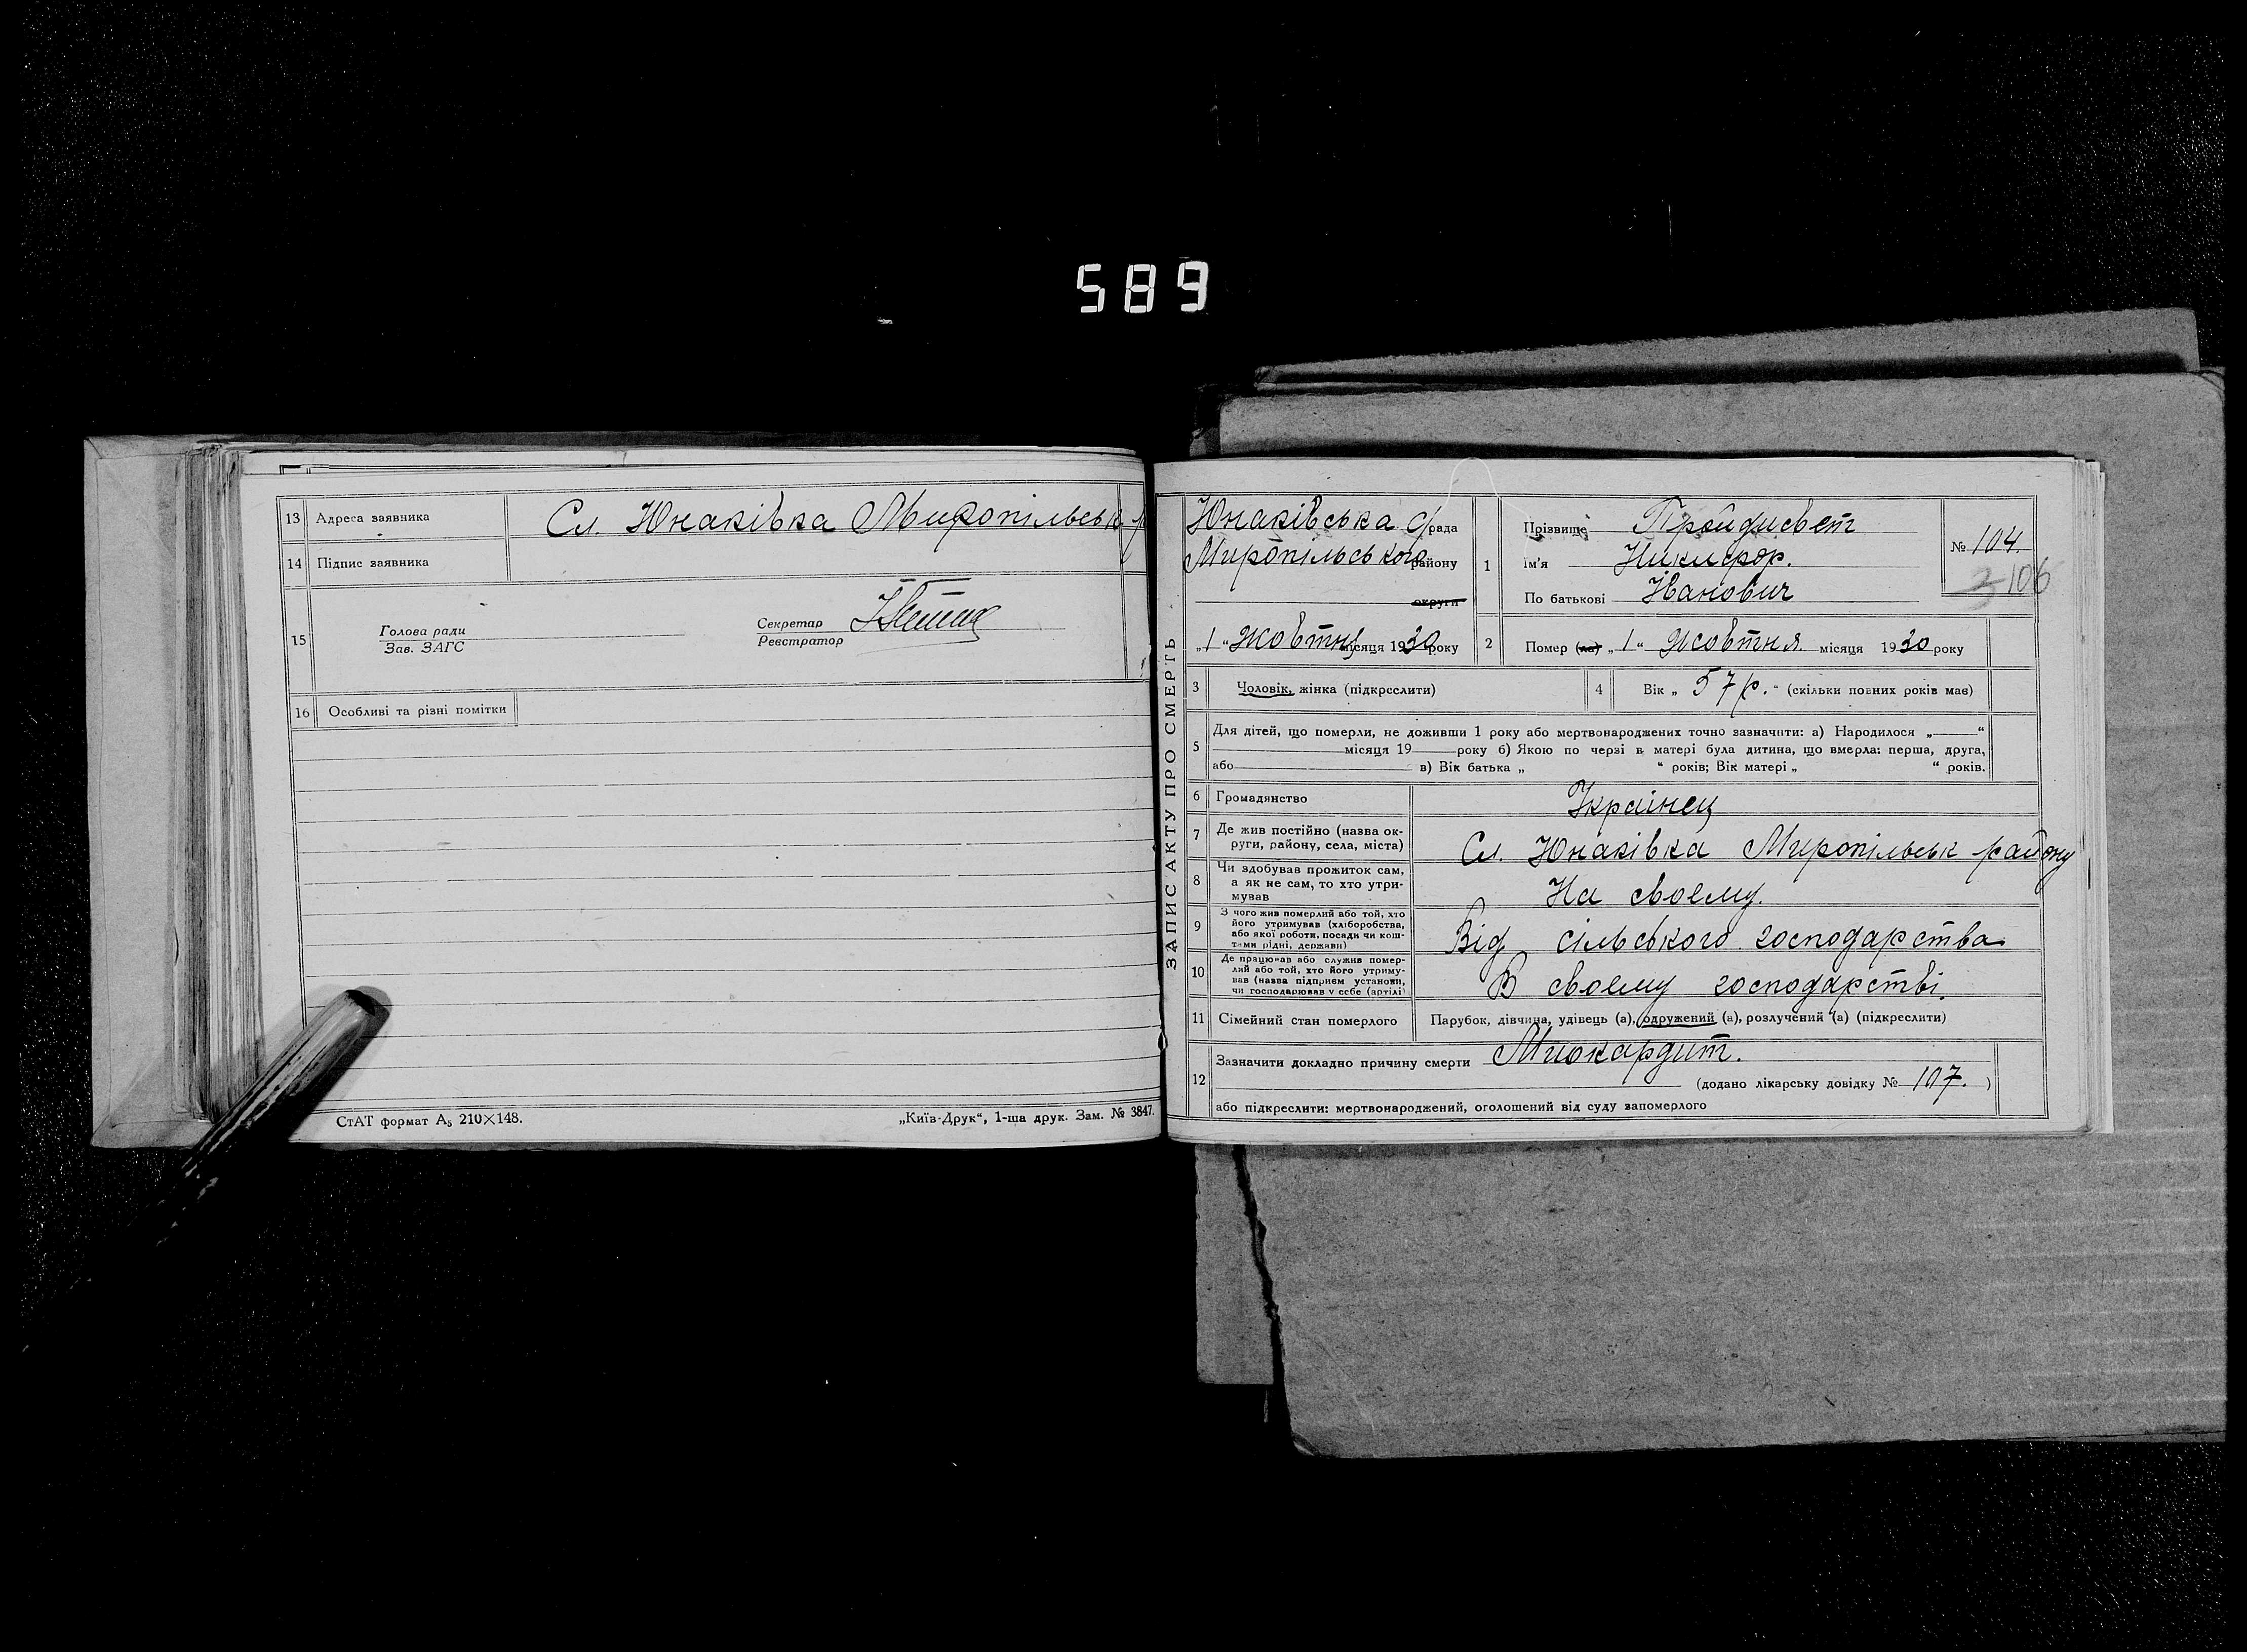 589
13 Адреса заявника Сл. Юнаківка Миропільськ р
14 Підпис заявника
15 Голова ради
Зав. ЗАГС
Секретар
Реєстратор
16 Особливі та різні помітки
СтАТ формат А5 210×148.
„Київ-Друк“, 1-ша друк. Зам. № 3847.
ЗАПИС АКТУ ПРО СМЕРТЬ
Юнаківська с/рада
Миропільського району
округи
„1“ жовтня місяця 1930 року
1 Прізвище Пройдисвет
Ім'я Никифор.
По батькові Иванович
№ 104.
106
2 Помер (ла) „1“ жовтня місяця 1930 року
3 Чоловік, жінка (підкреслити)
4 Вік „57 р.“ (скільки повних років має)
5 Для дітей, що померли, не доживши 1 року або мертвонароджених точно зазначити: а) Народилося „ “
місяця 19 року б) Якою по черзі в матері була дитина, що вмерла: перша, друга,
або в) Вік батька „ “ років; Вік матері „ “ років.
6 Громадянство Українец
7 Де жив постійно (назва ок-
руги, району, села, міста) Сл. Юнаківка Миропільськ району
8 Чи здобував прожиток сам,
а як не сам, то хто утри-
мував На своему.
9 З чого жив померлий або той, хто
його утримував (хліборобства,
або якої роботи, посади чи кош-
тами рідні, держави) Від сільського господарства
10 Де працював або служив помер-
лий або той, хто його утриму-
вав (назва підприєм установи,
чи господарював у себе (артілі) В своему господарстві.
11 Сімейний стан померлого Парубок, дівчина, удівець (а), одружений (а), розлучений (а) (підкреслити)
12 Зазначити докладно причину смерти Миокардит.
(додано лікарську довідку № 107. )
або підкреслити: мертвонароджений, оголошений від суду запомерлого